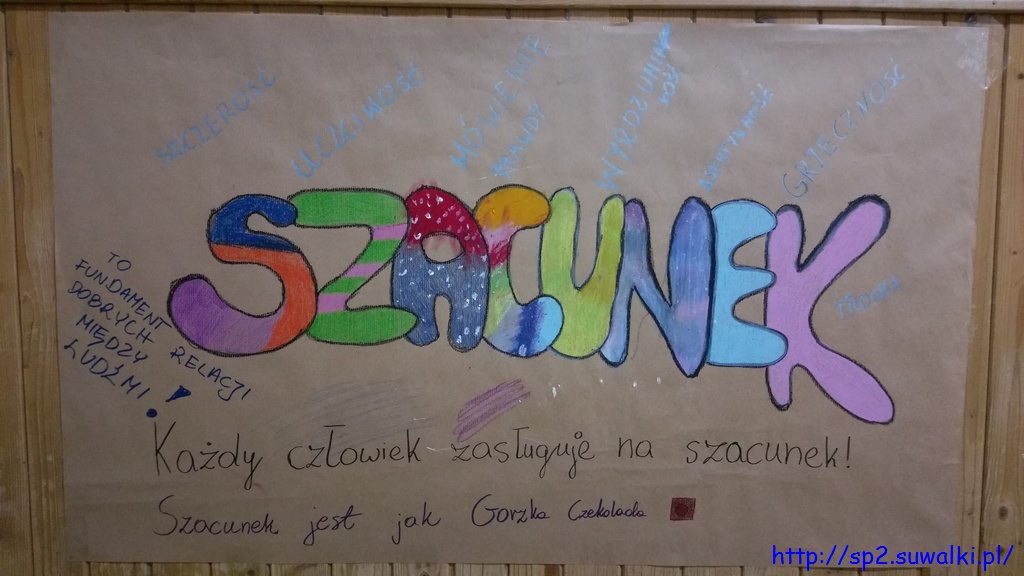 SZCZEROŚĆ
UCZCIWOŚĆ
MÓWIENIE
PRAWDY
WYROZUMIA
ŁOŚĆ
GRZECZNOŚĆ
SZACUNEK
TROSKA
TO
FUNDAMENT
DOBRYCH RELACJI
MIĘDZY
LUDŹMI!
Każdy człowiek zasługuje na szacunek!
Szacunek jest jak Gorzka Czekolada
http://sp2.suwalki.pl/